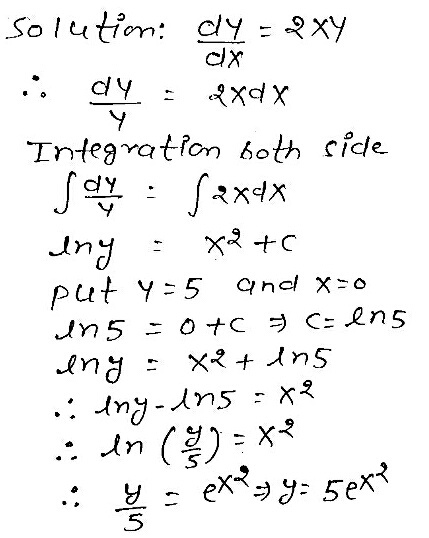 Solution: dy/dx = 2xy
∴ dy/y = 2xdx
Integration both side
∫ dy/y = ∫ 2xdx
lny = x² + c
put y = 5 and x = 0
ln5 = 0 + c ⇒ c = ln5
lny = x² + ln5
∴ lny - ln5 = x²
∴ ln (y/5) = x²
∴ y/5 = eˣ² ⇒ y = 5eˣ²